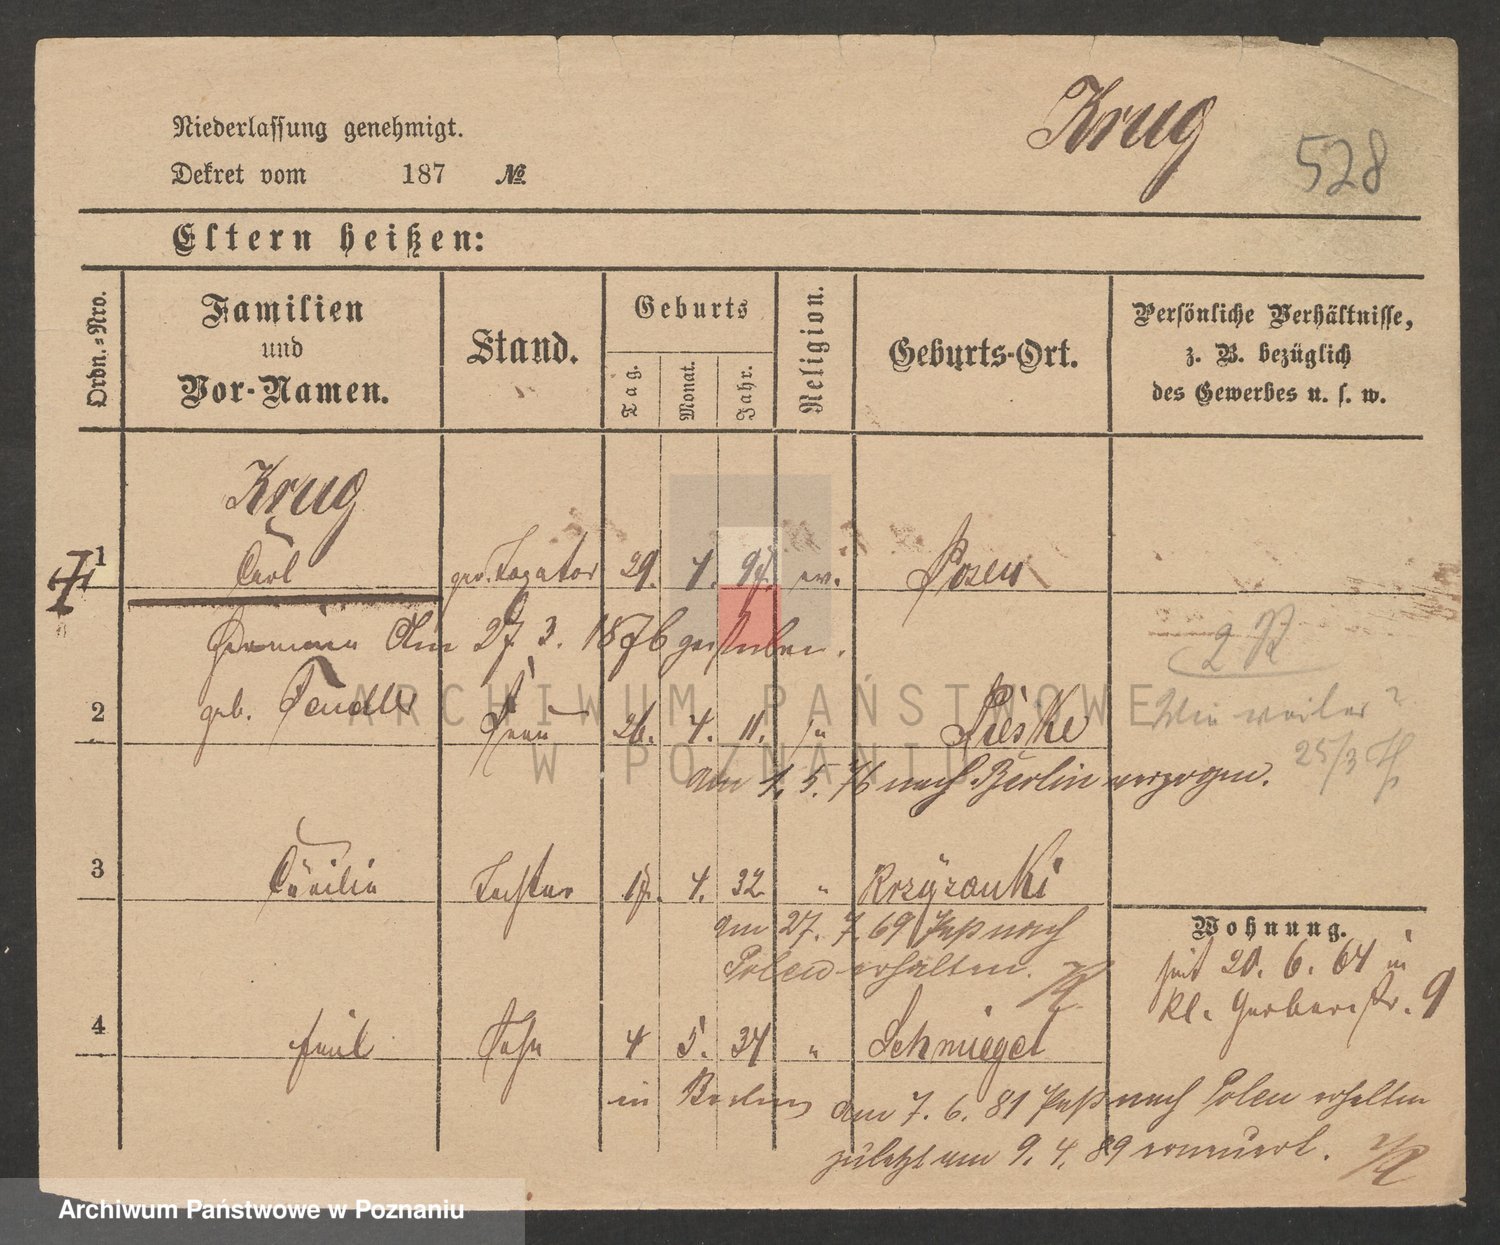 Krug
528
Niederlassung genehmigt.
Dekret vom 187 №
Eltern heißen:
Ordn.-Nro.
Familien
und
Vor-Namen.
Stand.
Geburts
Tag.
Monat.
Jahr.
Religion.
Geburts-Ort.
Persönliche Verhältnisse,
z. B. bezüglich
des Gewerbes u. s. w.
Krug
1 Carl ger. Taxator 29. 1. 97. ev. Posen
Am 27. 3. 1876 gestorben.
2 geb. Frau 26. 4. 11. Pieske
25/3
am 1. 5. 76 nach Berlin verzogen.
3 Cäcilie Tochter 17. 4. 32 " Krzyzanki
am 27. 7. 69 Paß nach
Polen erhalten.
Wohnung.
seit 20. 6. 64 in
kl. Gerberstr. 9
4 Emil Sohn 4 5. 34 " Schmiegel
in Berlin
am 7. 6. 81 Paß nach Polen erhalten
zuletzt am 9. 4. 89 erneuert.
ARCHIWUM PAŃSTWOWE
W POZNANIU
Archiwum Państwowe w Poznaniu